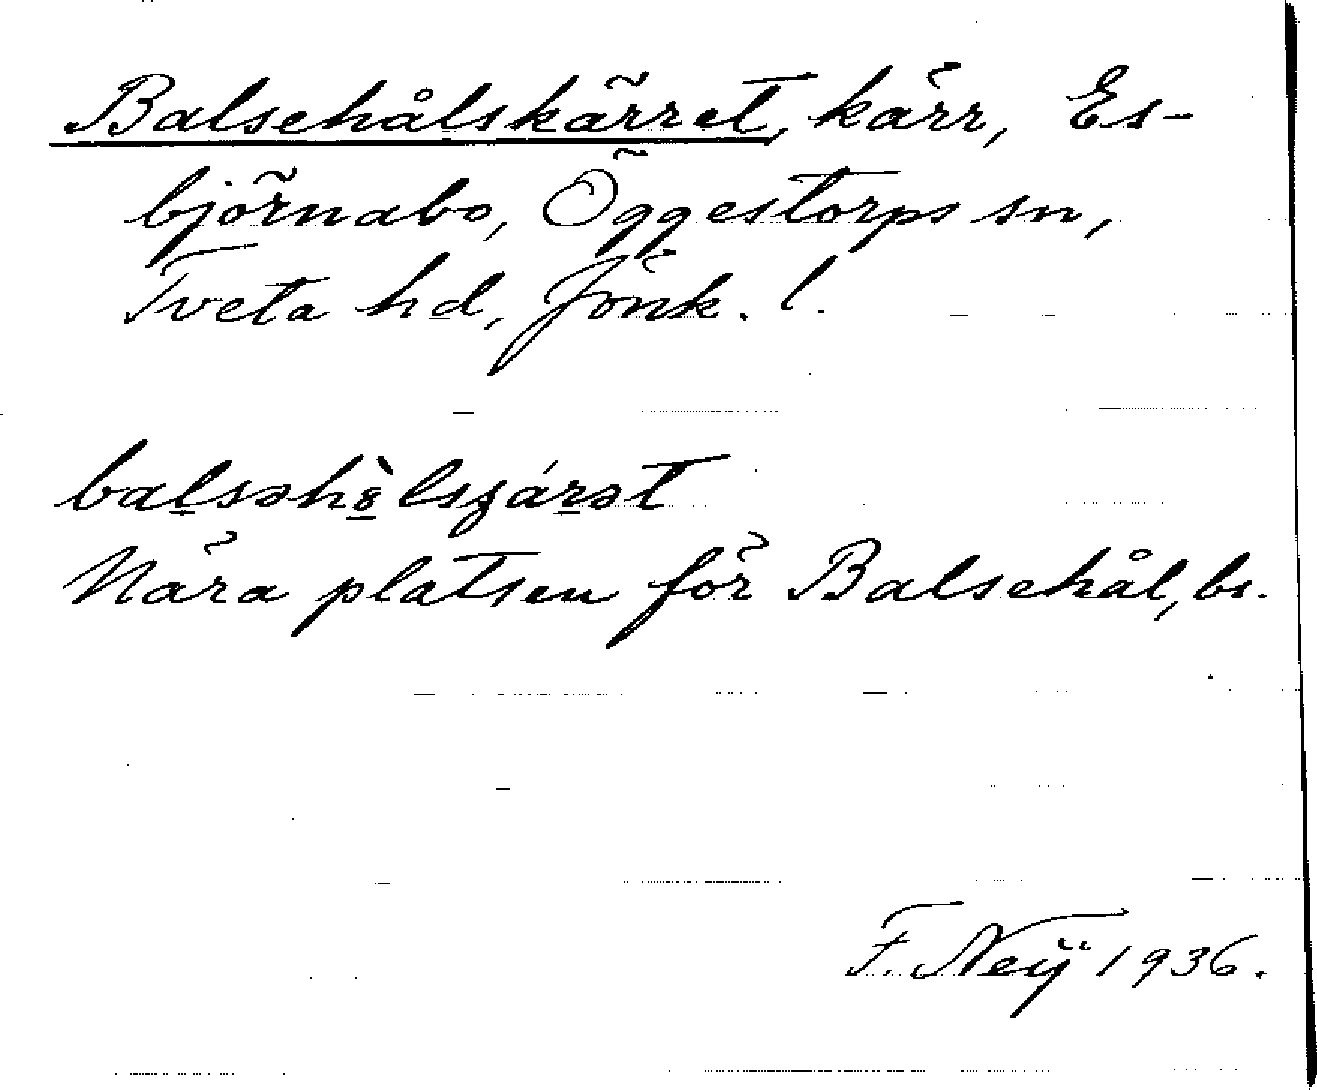 Balsehålskärret, kärr, Es-
björnabo, Öggestorps sn,
Tveta hd, Jönk. l.
Nära platsen för Balsehål, bs.
F. Neÿ 1936.